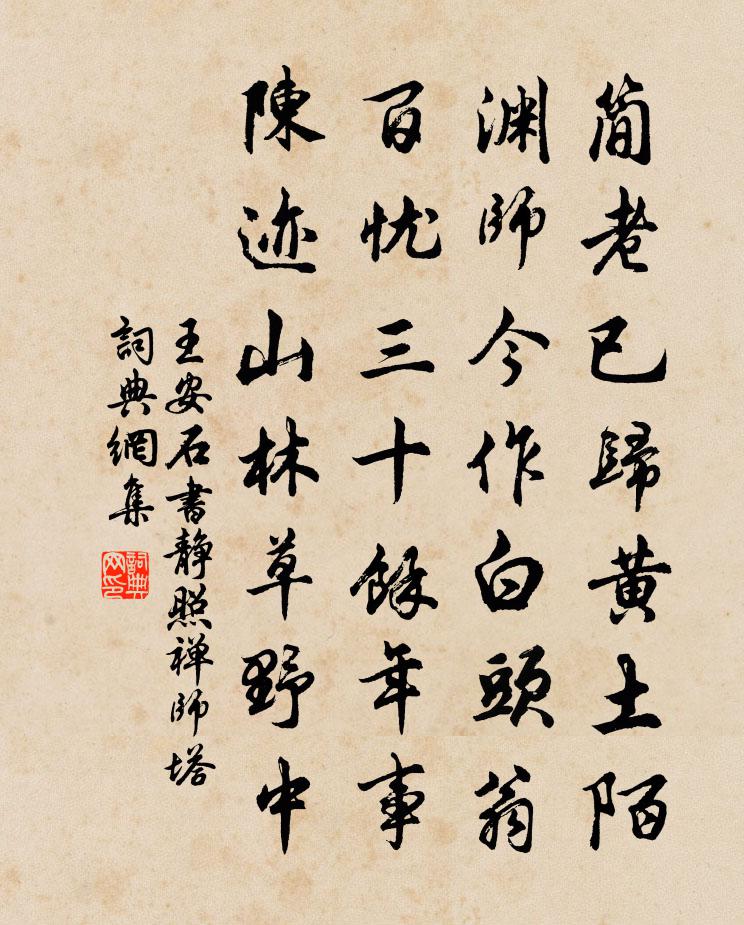 简老已歸黄土陌
渊師今作白頭翁
百忧三十餘年事
陳迹山林草野中
王安石書静照禅師塔
詞典網集
詞典网印